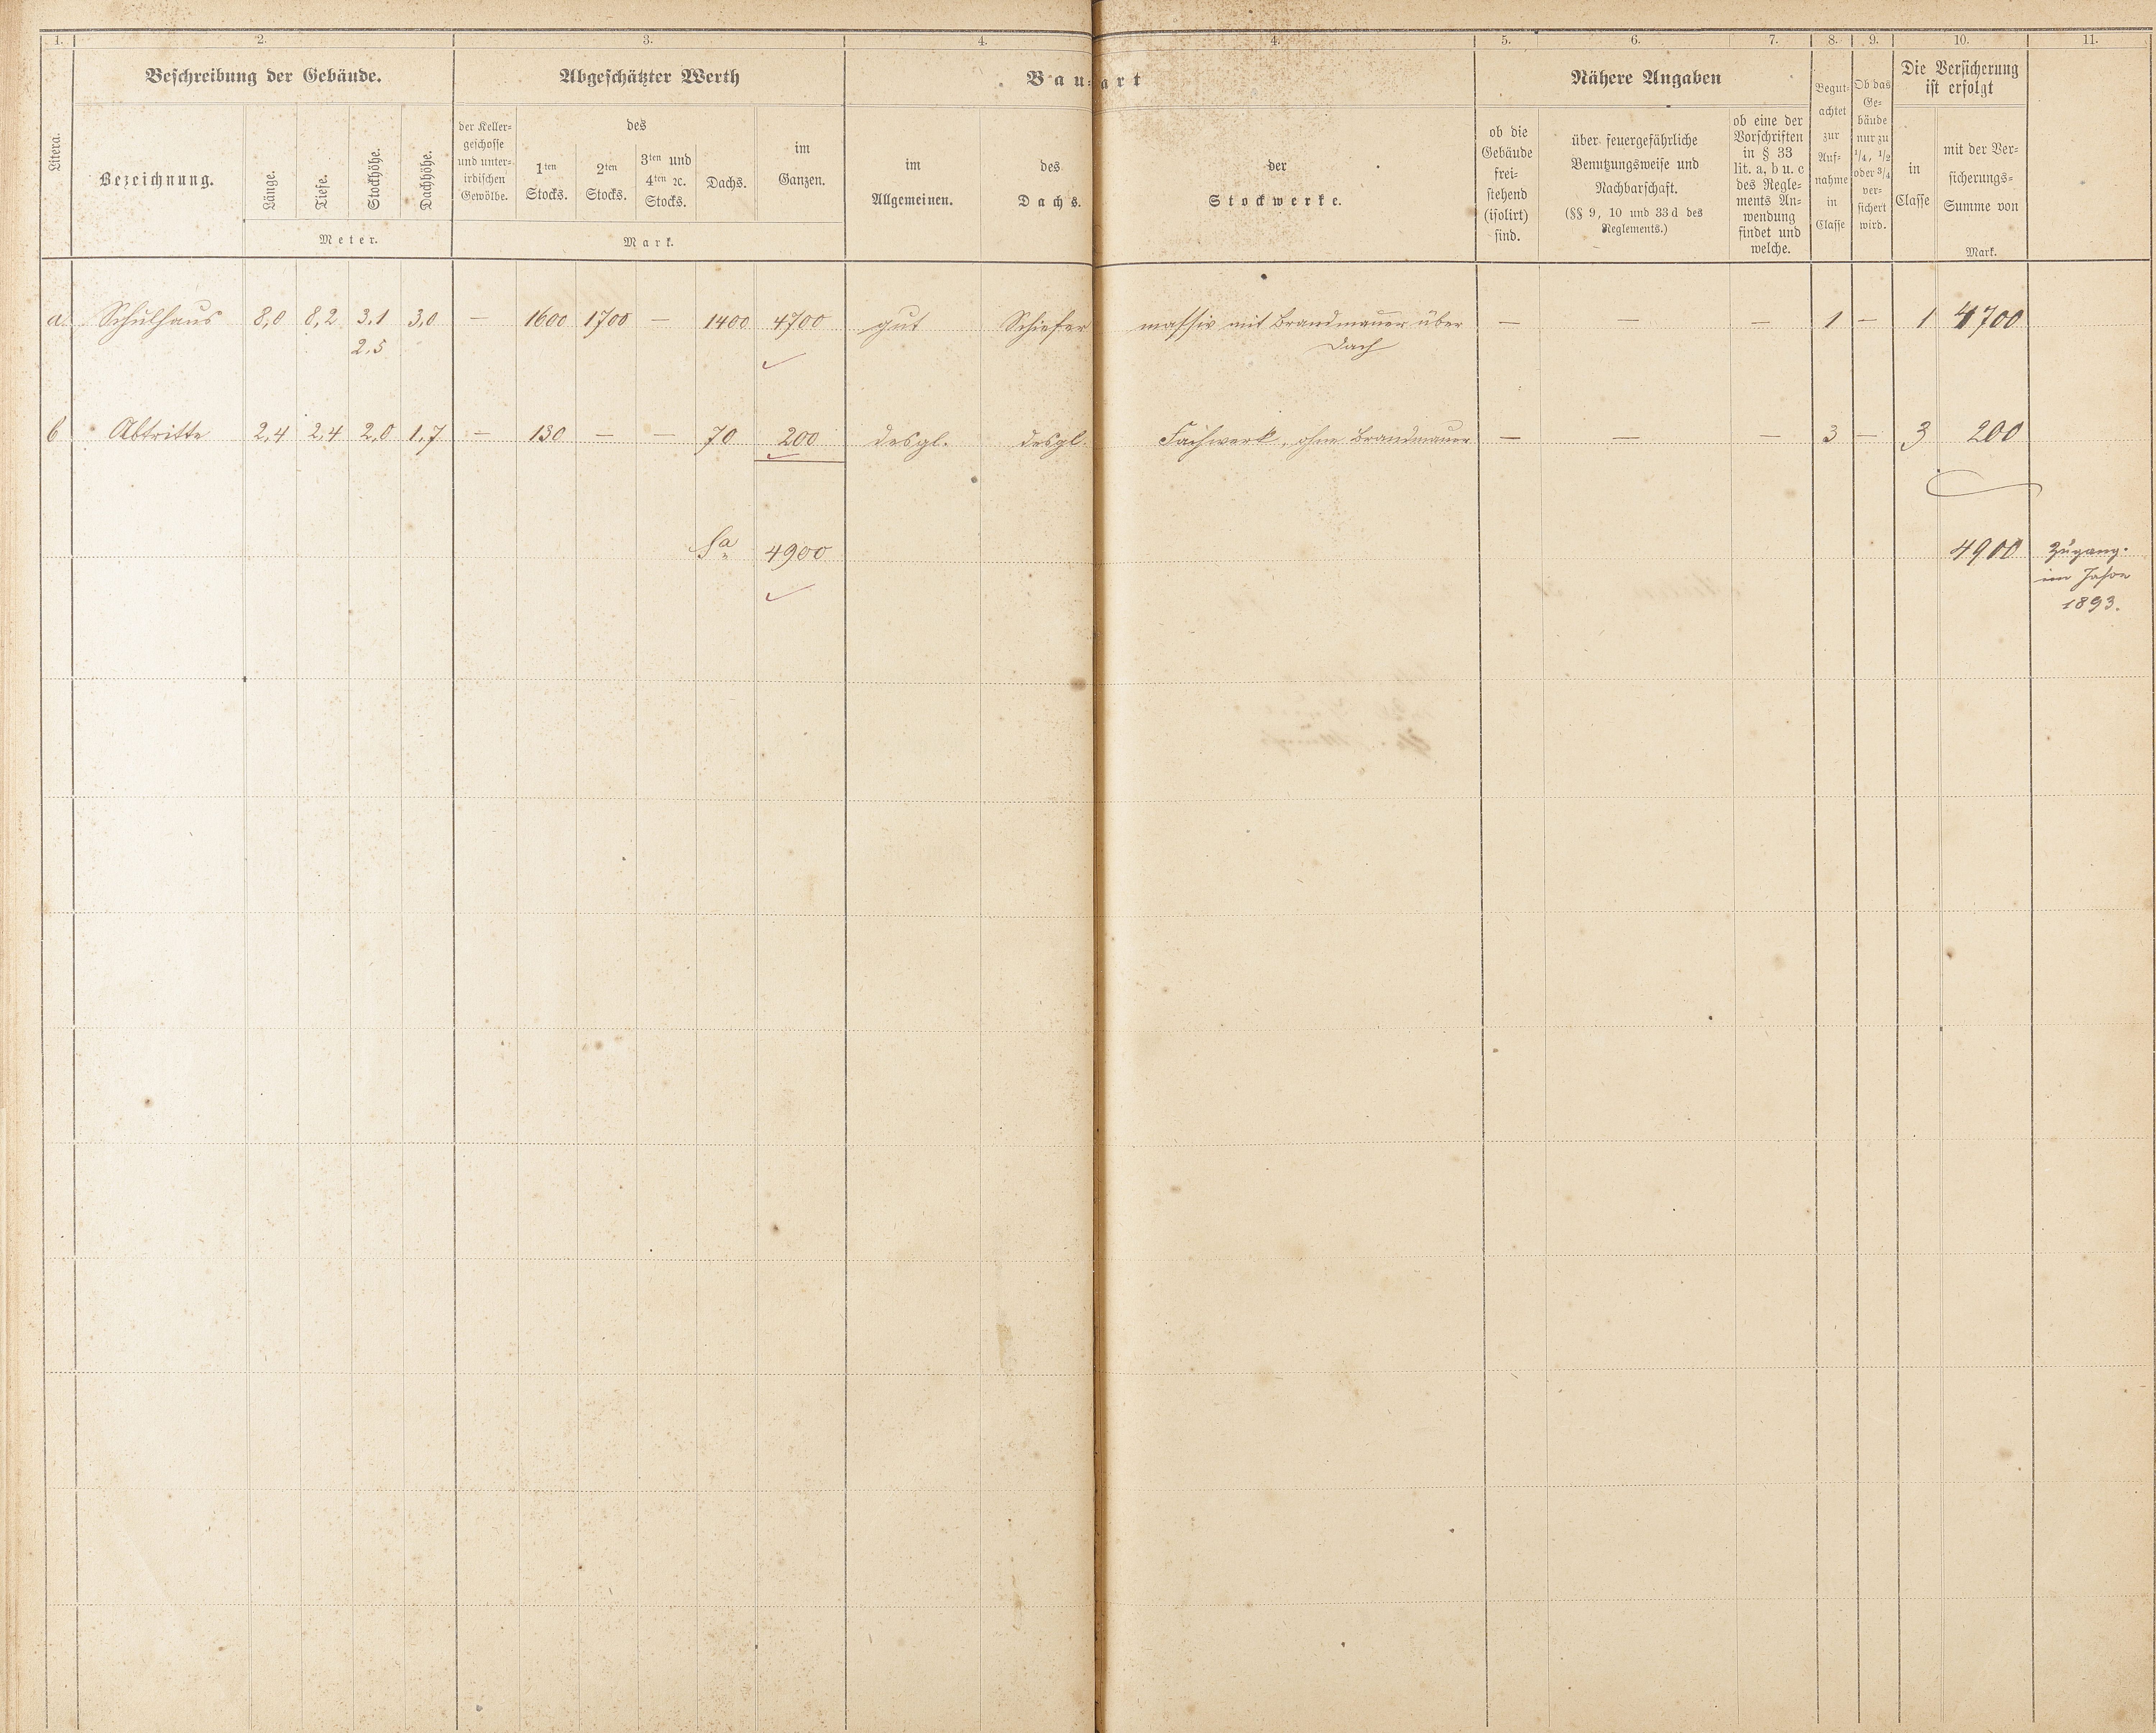 1. 2. 3. 4. 4. 5. 6. 7. 8. 9. 10. 11.
Litera.
Beschreibung der Gebäude.
Bezeichnung.
Länge.
Tiefe.
Stockhöhe.
Dachhöhe.
Meter.
Abgeschätzter Werth
der Keller=
geschosse
und unter=
irdischen
Gewölbe.
des
1ten
Stocks.
2ten
Stocks.
3ten und
4ten ꝛc.
Stocks.
Dachs.
im
Ganzen.
Mark.
Bau=art
im
Allgemeinen.
des
Dachs.
der
Stockwerke.
Nähere Angaben
ob die
Gebäude
frei=
stehend
(isolirt)
sind.
über feuergefährliche
Benutzungsweise und
Nachbarschaft.
(§§ 9, 10 und 33 d des
Reglements.)
ob eine der
Vorschriften
in § 33
lit. a, b u. c
des Regle=
ments An=
wendung
findet und
welche.
Begut=
achtet
zur
Auf=
nahme
in
Classe
Ob das
Ge=
bäude
nur zu
1/4, 1/2
oder 3/4
ver=
sichert
wird.
Die Versicherung
ist erfolgt
in
Classe
mit der Ver=
sicherungs=
Summe von
Mark.
a. Schulhaus 8,0 8,2 3,1 3,0 — 1600 1700 — 1400 4700 gut Schiefer massiv mit Brandmauer über — — — 1 — 1 4700
2,5 Dach
b Abtritte 2,4 2,4 2,0 1,7 — 130 — — 70 200 desgl. desgl. Fachwerk, ohne Brandmauer — — — 3 — 3 200
Sa 4900 4900 Zugang.
im Jahre
1893.